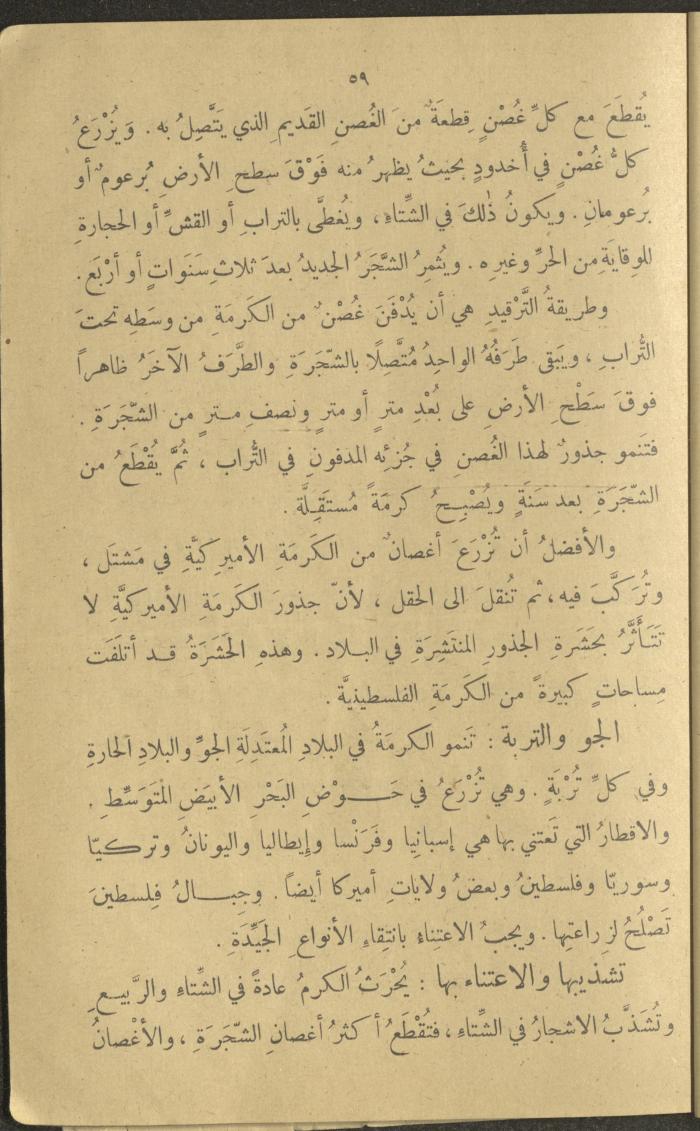 ٥٩
يُقطَعَ مع كلِّ غُصْنٍ قِطعَةٌ منَ الغُصنِ القَديمِ الذي يَتَّصِلُ به. وَيُزْرَعُ
كلُّ غُصْنٍ في أُخدودٍ بحيثُ يظهرُ منه فَوْقَ سطحِ الأرضِ بُرعومٌ أو
بُرعومانِ. ويكونُ ذٰلكَ في الشِّتاءِ، ويُغطَّى بالترابِ أو القشِّ أو الحجارةِ
للوِقايَةِ من الحرِّ وغيرِه. ويُثمِرُ الشَّجَرُ الجديدُ بعدَ ثلاثِ سَنَواتٍ أو أرْبَع.
وطريقةُ التَّرْقيدِ هي أن يُدْفَنَ غُصْنٌ من الكَرمَةِ من وسَطِه تحتَ
التُّرابِ، ويَبقى طَرَفُهُ الواحِدُ مُتَّصِلًا بالشّجَرَةِ والطَّرَفُ الآخَرُ ظاهراً
فوقَ سَطْحِ الأرضِ على بُعْدِ مترٍ أو مترٍ ونصفِ مترٍ من الشّجَرَةِ.
فتَنمو جذورٌ لهذا الغُصنِ في جُزئِه المدفونِ في التُّراب، ثُمَّ يُقْطَعُ من
الشّجَرَةِ بعد سَنَةٍ ويُصْبِحُ كرمَةً مُستَقِلَّة.
والأفضلُ أن تُزْرَعَ أغصانٌ من الكَرمَةِ الأميركيَّةِ في مَشتَل،
وتُركَّبَ فيه، ثم تُنقلَ الى الحقل، لأنّ جذورَ الكَرمَةِ الأميركيَّةِ لا
تَتَأَثَّرُ بحَشَرةِ الجذورِ المنتَشِرَةِ في البلاد. وهذهِ الحَشَرَةُ قد أتلَفَت
مِساحاتٍ كبيرةً من الكَرمَةِ الفلسطينيَّة.
الجو والتربة: تَنمو الكرمَةُ في البلادِ المُعتَدِلَةِ الجوِّ والبلادِ الحارةِ
وفي كلِّ تُرْبَةٍ. وهي تُزْرَعُ في حَوْضِ البَحْرِ الأبيَضِ المتَوَسِّطِ.
والاقطارُ التي تَعتني بها هي إسبانِيا وفَرَنْسا وإيطاليا واليونانُ وتركيّا
وسوريّا وفلسطينُ وبعضُ ولاياتِ أميركا أيضاً. وجِبالُ فِلسطينَ
تَصْلُحُ لزراعتِها. ويجبُ الاعتِناءُ بانتِقاءِ الأنواعِ الجَيِّدَةِ.
تشذيبها والاعتناء بها: يُحْرَثُ الكرمُ عادةً في الشِّتاءِ والرَّبيعِ
وتُشَذَّبُ الاشجارُ في الشِّتاءِ، فتُقْطَعُ أكثرُ أغصانِ الشّجَرَةِ، والأغْصانُ